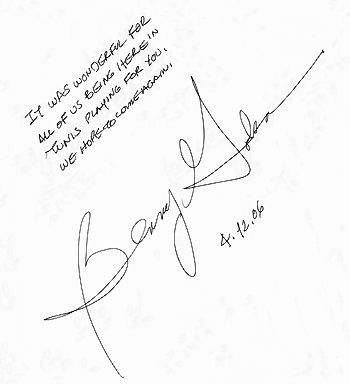 IT WAS WONDERFUL FOR
ALL OF US BEING HERE IN
TUNIS PLAYING FOR YOU.
WE HOPE TO COME AGAIN.
Benny Golson
4.12.06